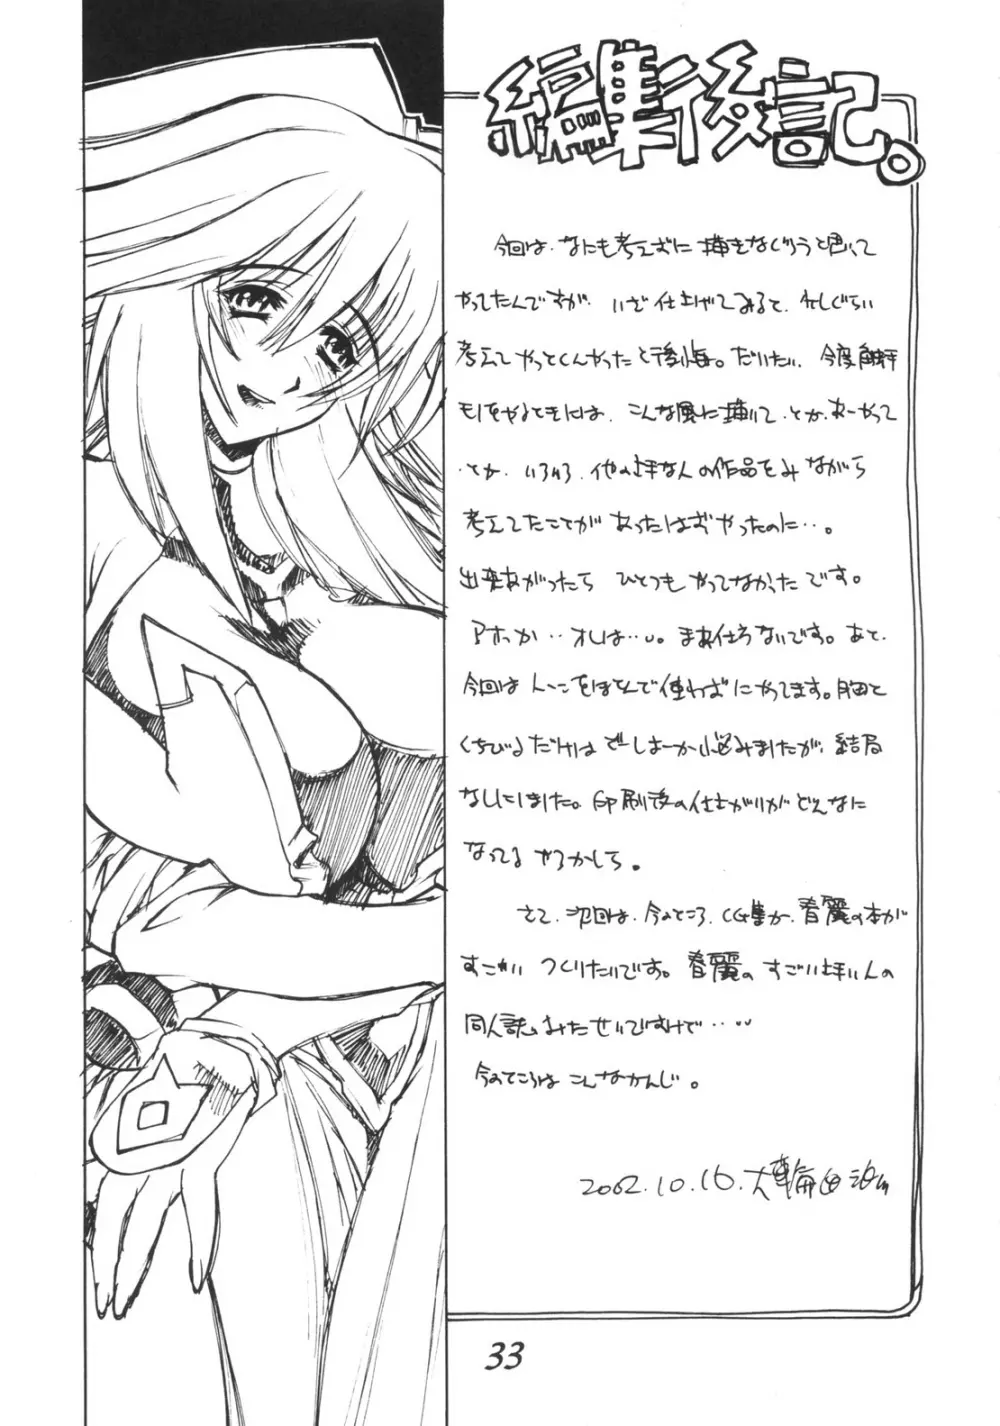 編集後記。
今回は、なにも考えずに描きなぐろうと思って
やってたんですが、いざ仕上げてみると、少しぐらい
考えてやっとくんやったと後悔。だいたい、今度触手
モノをやるときには、こんな風に描いて、とか、あーやって
、とか、いろいろ、他の上手な人の作品をみながら
考えてたことがあったはずやったのに…。
出来あがったら ひとつもやってなかったです。
アホっか‥オレは…。まあ仕方ないです。あと、
今回はトーンをほとんど使わずにやってます。胸と
くちびるだけはどーしよーか悩みましたが、結局
なしにしました。印刷後の仕上がりがどんなに
なってるやろかしら。
さて、次回は、今のところ、CG集か、春麗の本が
すごい つくりたいです。春麗の すごい上手い人の
同人誌、みたせいですけど…‥
今のところは こんなかんじ。
2002.10.16.大輪田
33